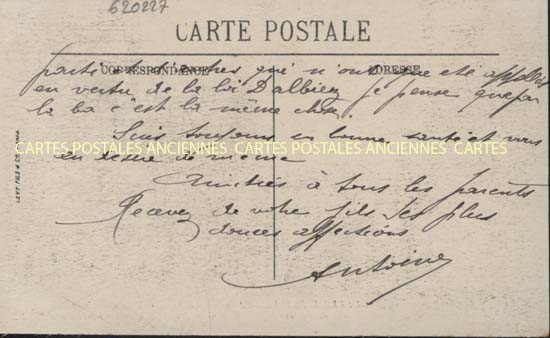 620227
CARTE POSTALE
CORRESPONDANCE
ADRESSE
partie d'autres qui n'ont que été appellés
en vertu de la loi Dalbiez je pense que par
la ba c'est la même chose.
Suis toujours en bonne santé et vous
en désire de même
CARTES POSTALES ANCIENNES CARTES POSTALES ANCIENNES CARTES
Amitiés à tous les parents
Recevez de votre fils les plus
douces affections
Antoine
LEVY FILS & Cie PARIS